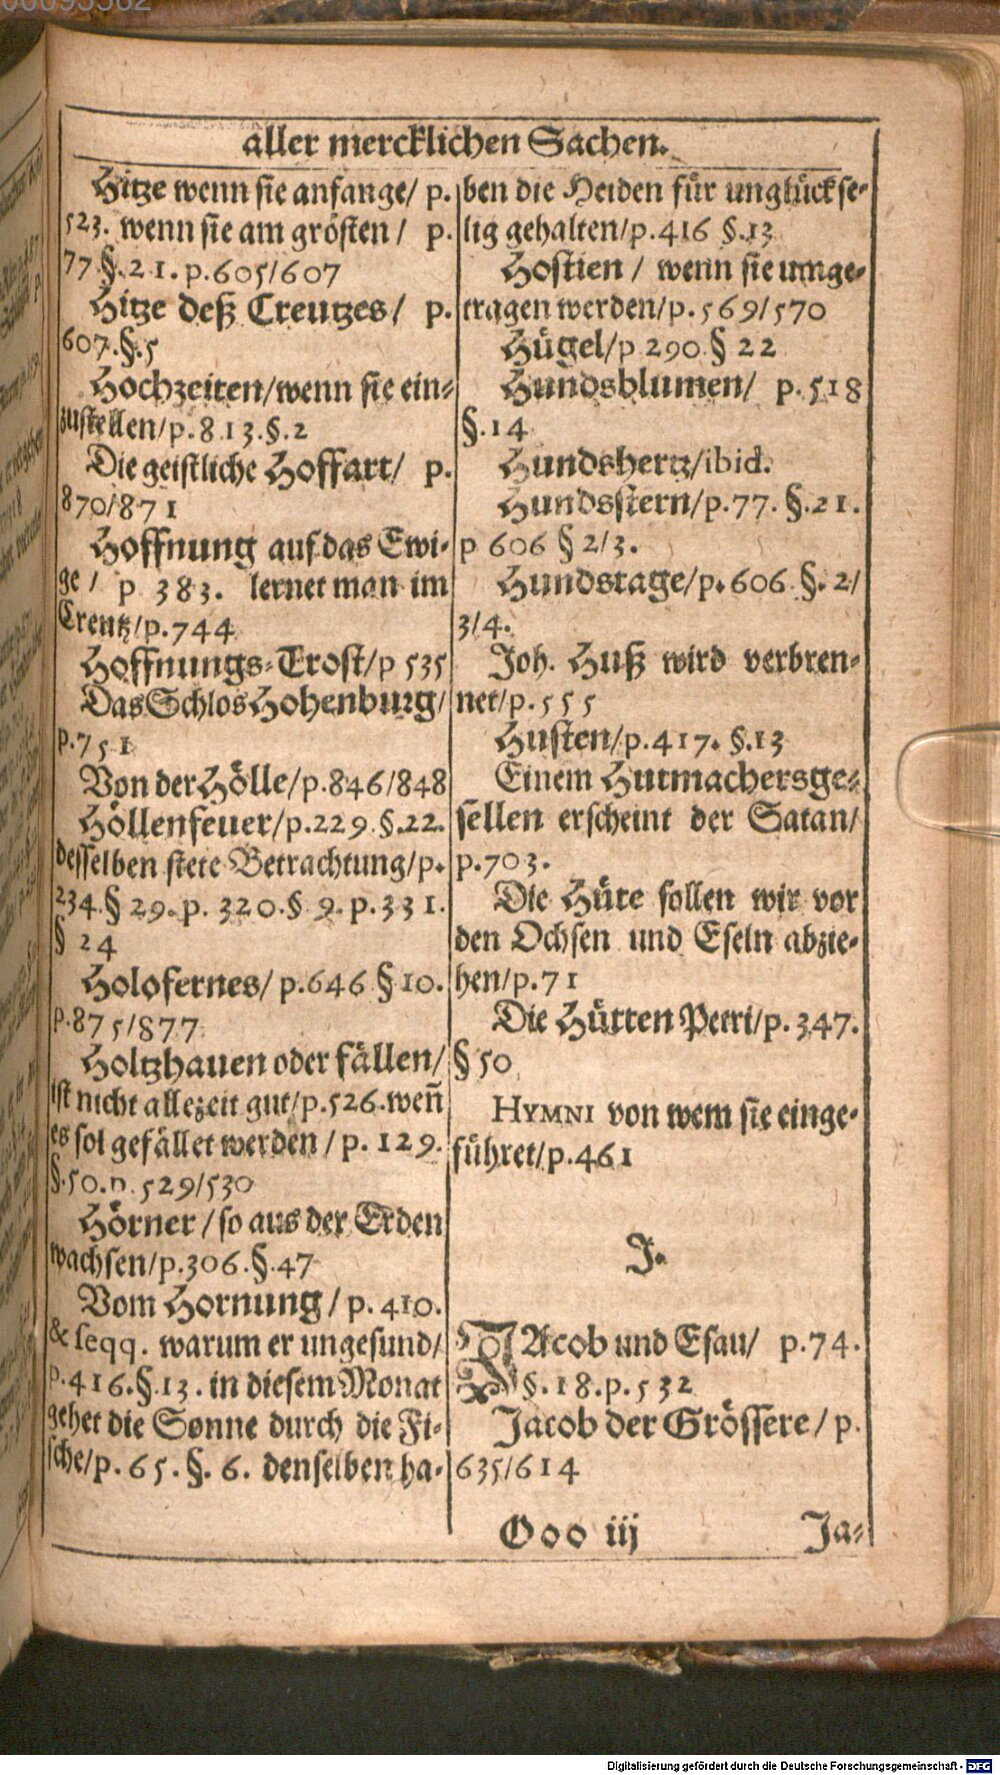 aller mercklichen Sachen.
Hitze wenn sie anfange/ p.
523. wenn sie am grösten / p.
77 §. 21. p. 605/607
Hitze deß Creutzes/ p.
607. §. 5
Hochzeiten/wenn sie ein-
zustellen/p. 813. §. 2
Die geistliche Hoffart/ p.
870/871
Hoffnung auf das Ewi-
ge / p 383. lernet man im
Creutz/p. 744
Hoffnungs-Trost/p 535
Das Schlos Hohenburg/
p. 751
Von der Hölle/p. 846/848
Höllenfeuer/p. 229 §. 22.
desselben stete Betrachtung/p.
234. § 29. p. 320. § 9. p. 331.
§ 24
Holofernes/ p. 646 § 10.
p. 875/877
Holtzhauen oder fällen/
ist nicht allezeit gut/p. 526. weñ
es sol gefället werden / p. 129.
§. 50. p. 529/530
Hörner / so aus der Erden
wachsen/p. 306. §. 47
Vom Hornung / p. 410.
& seqq. warum er ungesund/
p. 416. §. 13. in diesem Monat
gehet die Sonne durch die Fi-
sche/p. 65. §. 6. denselben ha-
ben die Heiden für unglückse-
lig gehalten/p. 416 §. 13
Hostien / wenn sie umge-
tragen werden/p. 569/570
Hügel/p 290 § 22
Hundsblumen/ p. 518
§. 14
Hundshertz/ibid.
Hundsstern/p. 77. §. 21.
p 606 § 2/3.
Hundstage/p. 606 §. 2/
3/4.
Joh. Huß wird verbren-
net/p. 555
Husten/p. 417. §. 13
Einem Hutmachersge-
sellen erscheint der Satan/
p. 703.
Die Hüte sollen wir vor
den Ochsen und Eseln abzie-
hen/p. 71
Die Hütten Petri/p. 347.
§ 50
HYMNI von wem sie einge-
führet/p. 461
J.
JAcob und Esau/ p. 74.
§. 18. p. 532
Jacob der Grössere / p.
635/614
Ooo iij Ja-
Digitalisierung gefördert durch die Deutsche Forschungsgemeinschaft - DFG